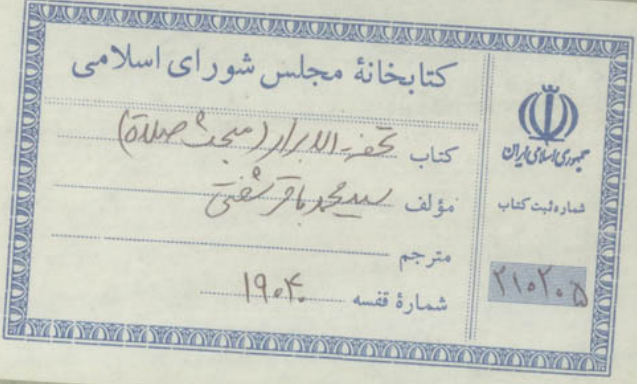 کتابخانهٔ مجلس شورای اسلامی
کتاب تحفة الابرار (مبحث صلاة)
مؤلف سید محمد باقر شفتی
مترجم
شمارهٔ قفسه ۱۹۰۴۰
جمهوری اسلامی ایران
شماره ثبت کتاب
۲۱۰۲۰۵